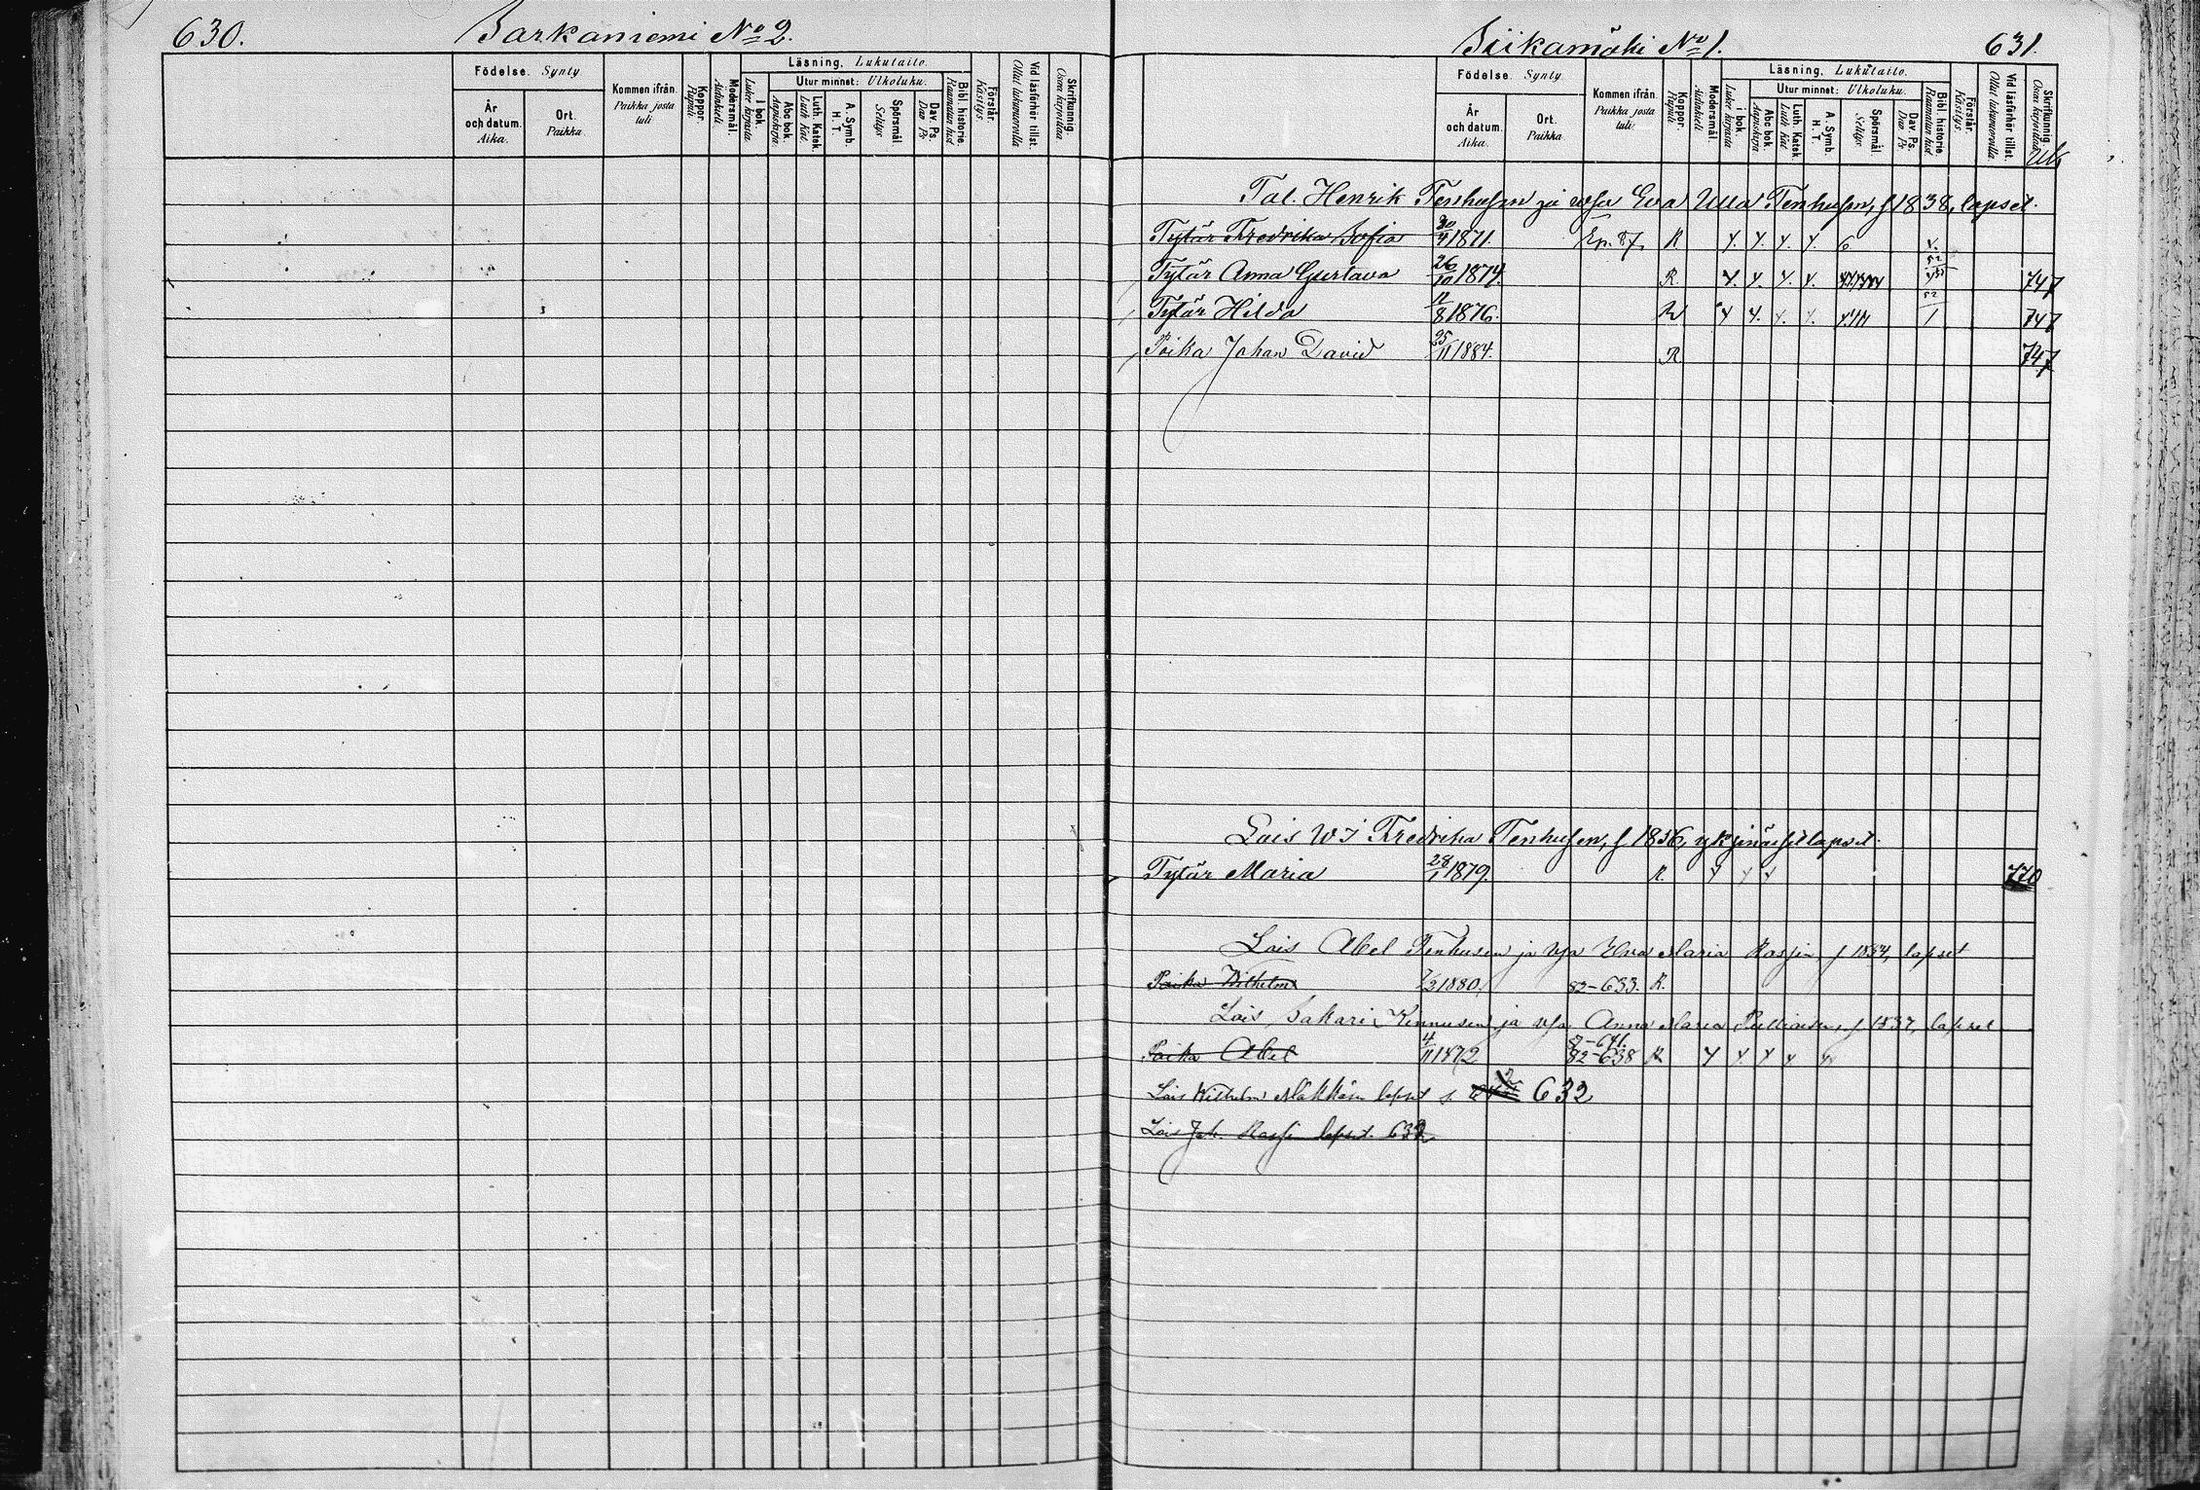 630.
Sarkaniemi No 2.
Födelse. Synty
År och datum. Aika.
Ort. Paikka.
Kommen ifrån. Paikka josta tuli
Koppor. Rupuli
Modersmål. Äidinkieli.
Läsning. Lukutaito.
I bok. Lukee kirjasta.
Utur minnet: Ulkoluku.
Abc bok. Aapiskirja.
Luth. Katek. Luth. Kat.
A. Symb. H. T.
Spörsmål Selitys
Dav. Ps. Dav. Ps
Bibl. historie. Raamatun hist
Förstår. Käsitys.
Vid läsförhör tillst. Ollut lukuvuorolla
Skrifkunnig. Osaa kirjoittaa
Siikamäki No 1.
631.
Födelse. Synty.
År och datum. Aika.
Ort. Paikka.
Kommen ifrån. Paikka josta tuli.
Koppor. Rupuli
Modersmål. Äidinkieli
Läsning. Lukutaito.
i bok. Lukee kirjasta
Utur minnet: Ulkoluku.
Abc bok. Aapiskirja
Luth. Katek. Luth. Kat
A. Symb. H. T.
Spörsmål. Selitys.
Dav. Ps. Dav. Ps
Bibl. historie. Raamatun hist.
Förstår. Käsitys.
Vid läsförhör tillst. Ollut lukuvuorolla.
Skrifkunnig. Osaa kirjoittaa
Tal. Henrik Tenhusen ja wsa Eva Ulla Tenhusen, f 1838, lapset.
Tytär Fredrika Sofia 30/4 1871. R
Tytär Anna Gustava 26/10 1874. R. 747
Tytär Hilda 12/8 1876. 747
Poika Johan David 25/11 1884. R 747
Lois Fredrika Tenhusen, f 1856, lapset.
Tytär Maria 28/1 1879. R. 770
Lois Abel Tenhusen ja wsa Maria lapset
Poika Wilhelm 7/3 1880. 82-633. R.
Lois Sakari Kinnusen ja wsa Anna Maria f 1837, lapset
Poika Abel 4/11 1872 82-638 R
Lois Wilhelm lapset s. 632
Lois Joh. lapset. 632